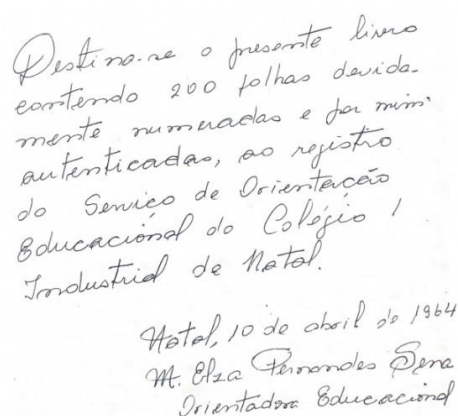 Destina-se o presente livro
contendo 200 folhas devida-
mente numeradas e por mim
autenticadas, ao registro
do Serviço de Orientação
Educacional do Colégio
Industrial de Natal.
Natal, 10 de abril de 1964
M. Elza Fernandes Sena
Orientadora Educacional